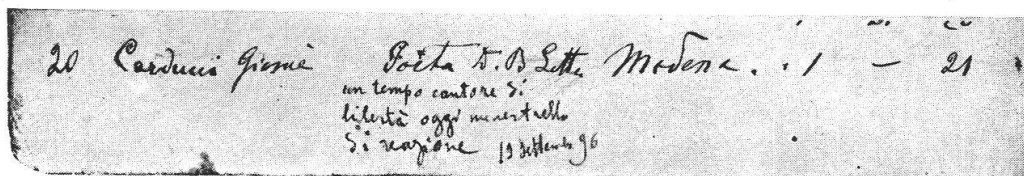 20 Carducci Giosuè Poeta D. B Lettere Modena . . 1 — 21
un tempo cantore di
libertà oggi menestrello
di reazione 19 Settembre 96